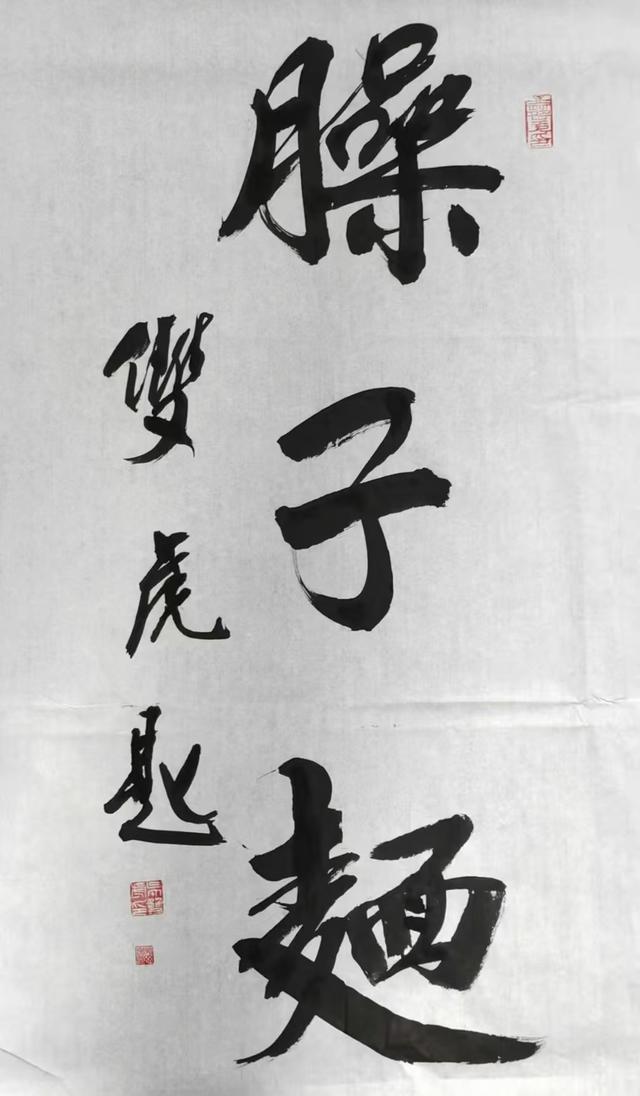 臊子麵
雙虎題